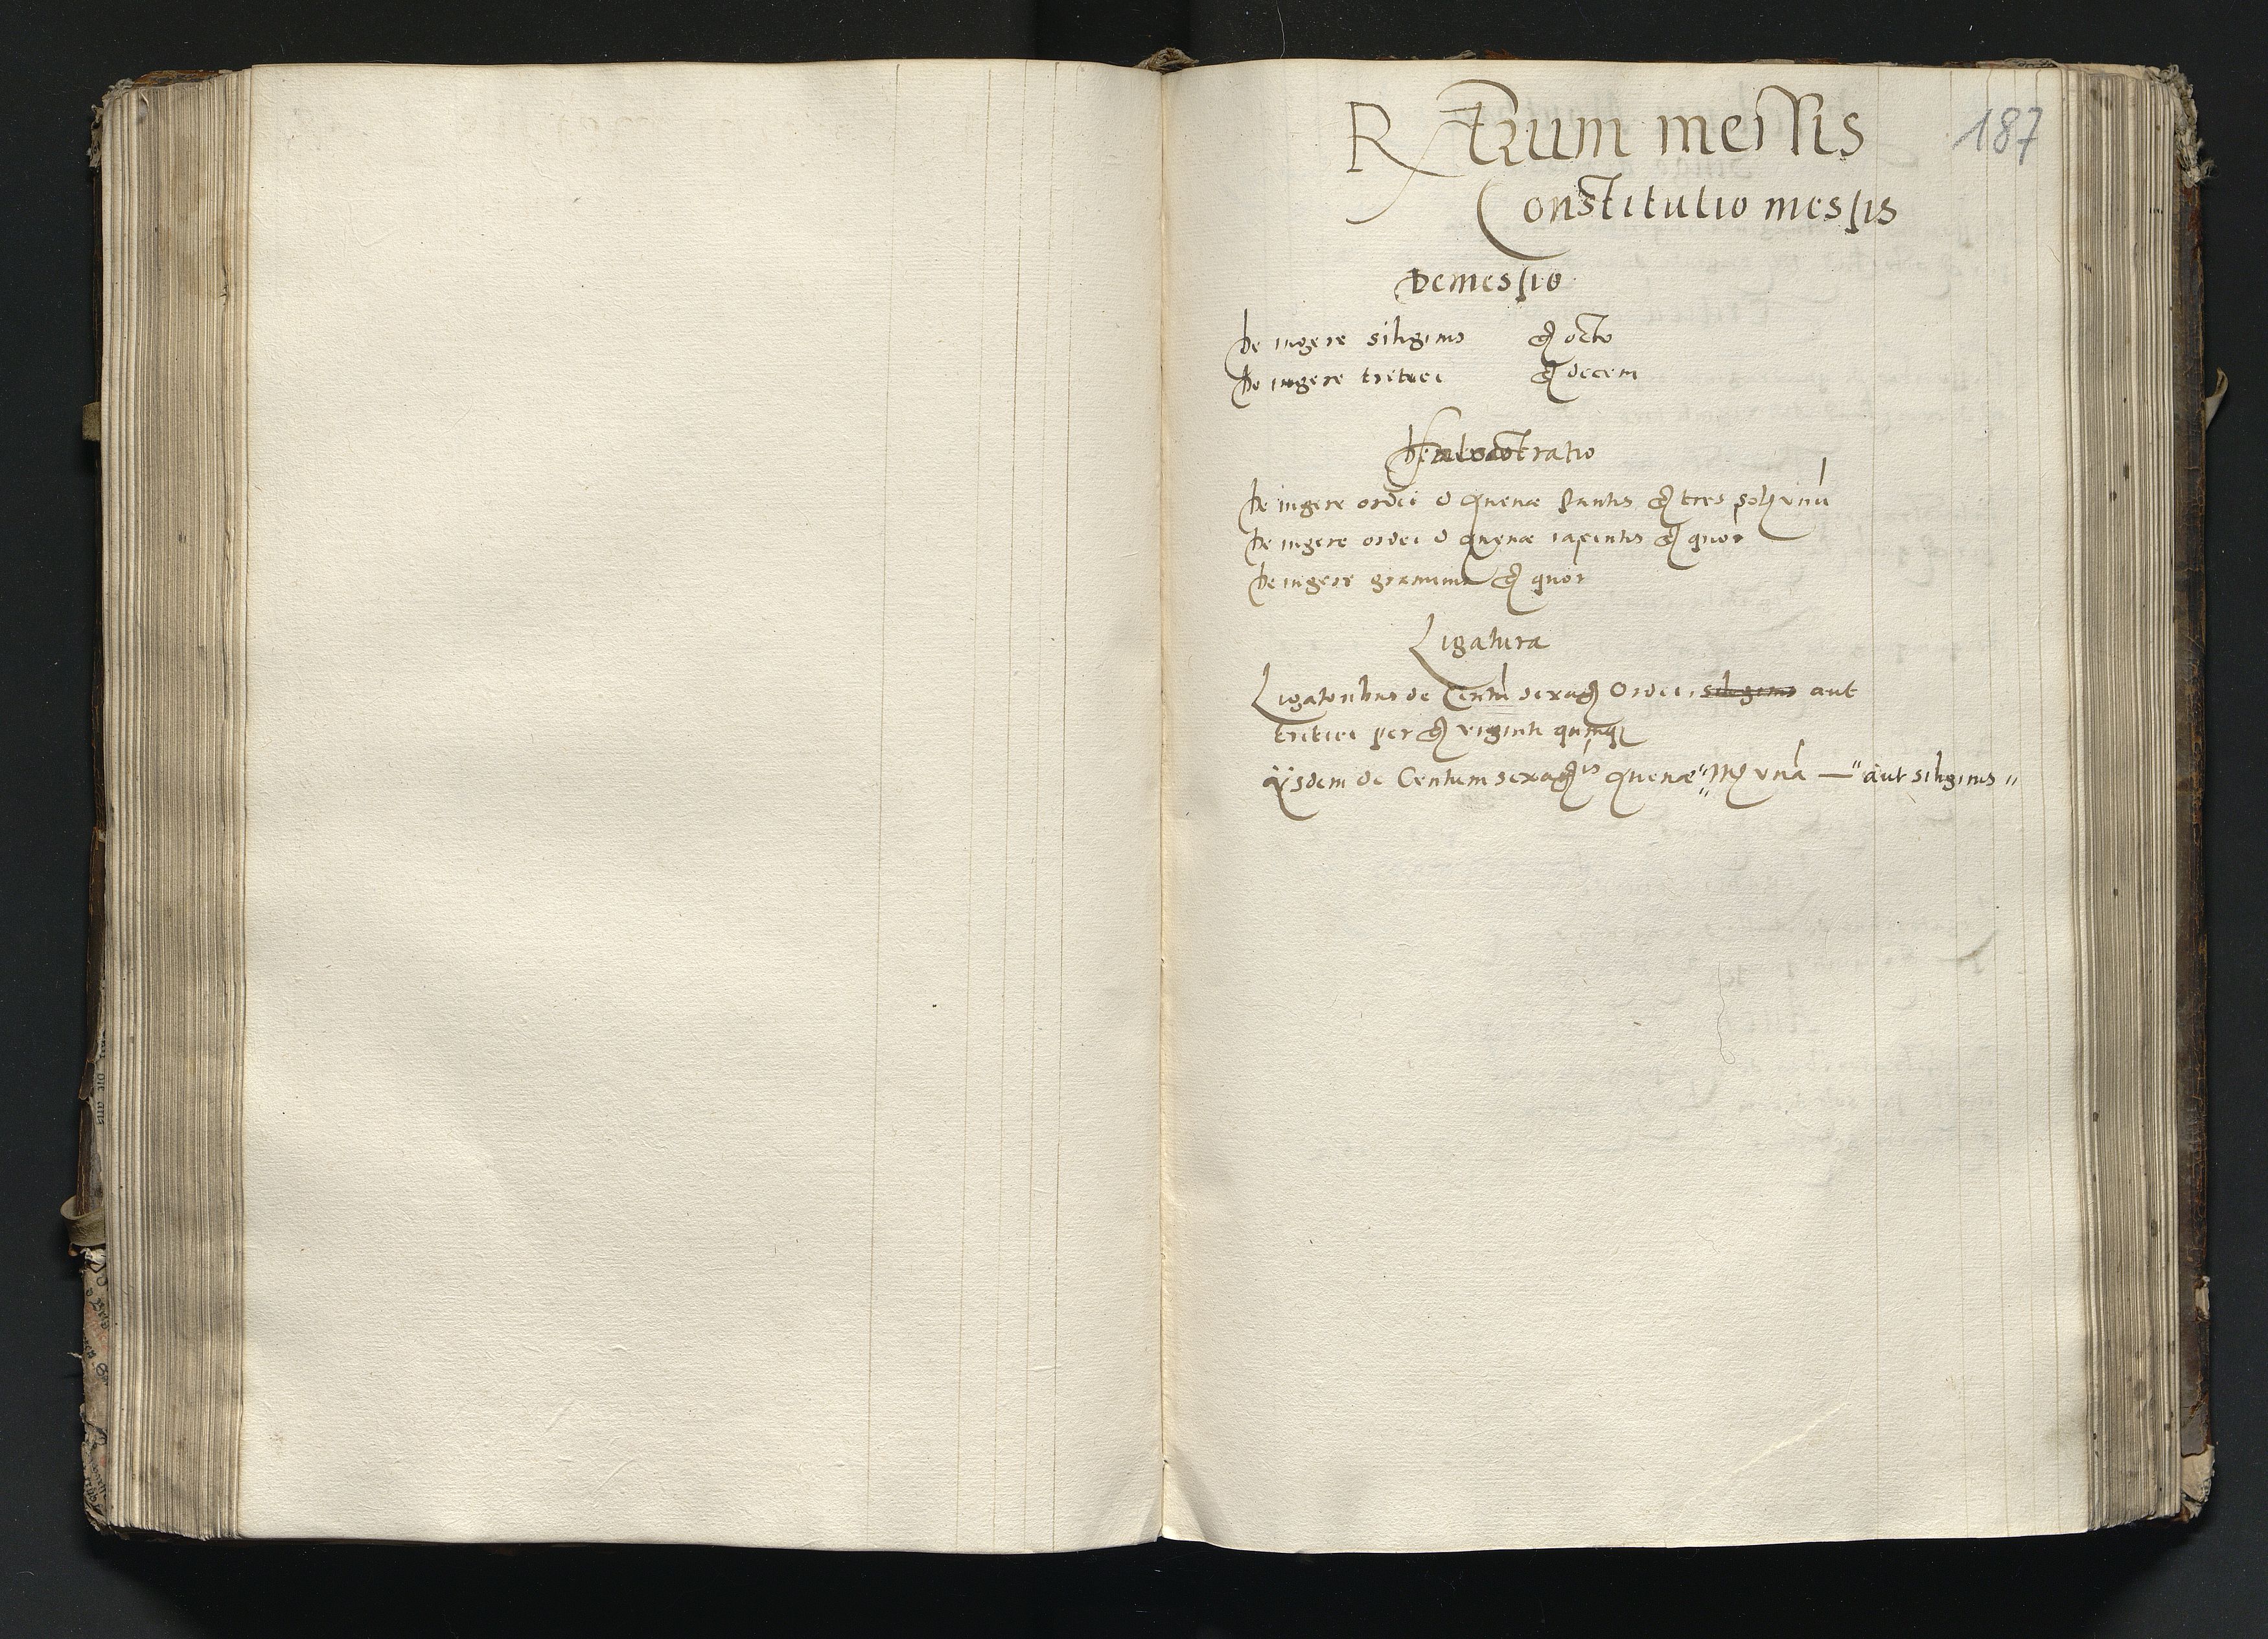 187
Rerum messis
Constitutio messis
Demessio
De iugere siliginis gͬ octo
De iugere tritici gͬ decem
tratio
De iugere ordei & avenæ stantis gͬ tres solͫ unū
De iugere ordei & avenæ iacentis gͬ quoͬ
De iugere graminis gͬ quoͬ
Ligatura
Ligatoribus de Centū sexagͫ Ordei, siliginis aut
tritici per gͬ viginti quinqꝫ
Iisdem de Centum sexagͥˢ avenæ unā — " aut siliginis "